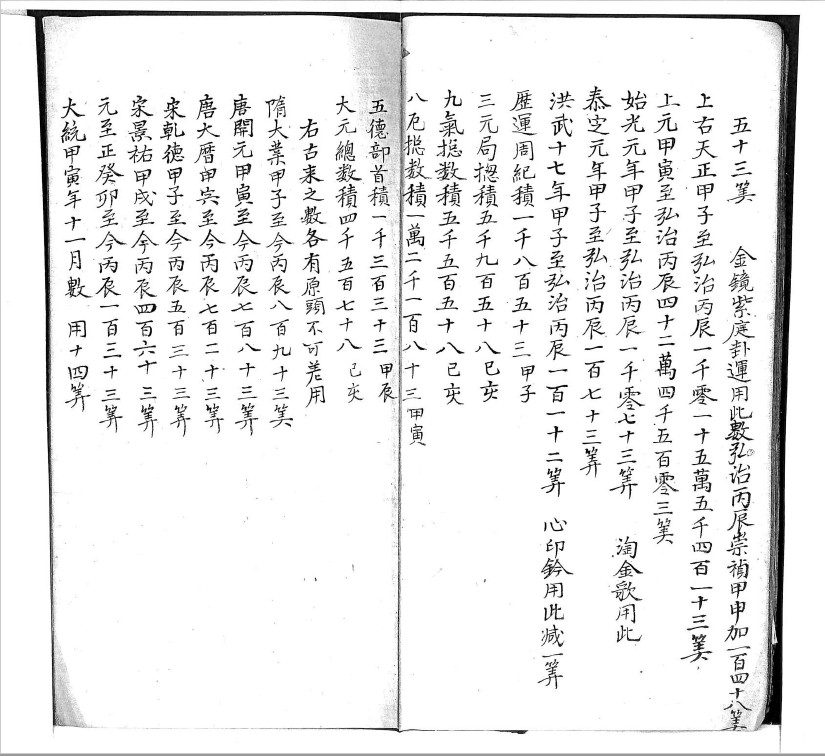 五十三筭　金鏡紫庭卦運用此數弘治丙辰崇禎甲申加一百四十八筭
上右天正甲子至弘治丙辰一千零一十五萬五千四百一十三筭
上元甲寅至弘治丙辰四十二萬四千五百零三筭
始光元年甲子至弘治丙辰一千零七十三筭　淘金歌用此
泰定元年甲子至弘治丙辰一百七十三筭
洪武十七年甲子至弘治丙辰一百一十二筭　心印鈐用此减一筭
歷運周紀積一千八百五十三甲子
三元局摠積五千九百五十八己亥
九氣摠数積五千五百五十八己亥
八厄摠数積一萬二千一百八十三甲寅
五德部首積一千三百三十三甲辰
大元總数積四千五百七十八己亥
右古来之數各有原頭不可差用
隋大業甲子至今丙辰八百九十三筭
唐開元甲寅至今丙辰七百八十三筭
唐大曆甲寅至今丙辰七百二十三筭
宋乾德甲子至今丙辰五百三十三筭
宋景祐甲戌至今丙辰四百六十三筭
元至正癸卯至今丙辰一百三十三筭
大統甲寅年十一月數　用十四筭